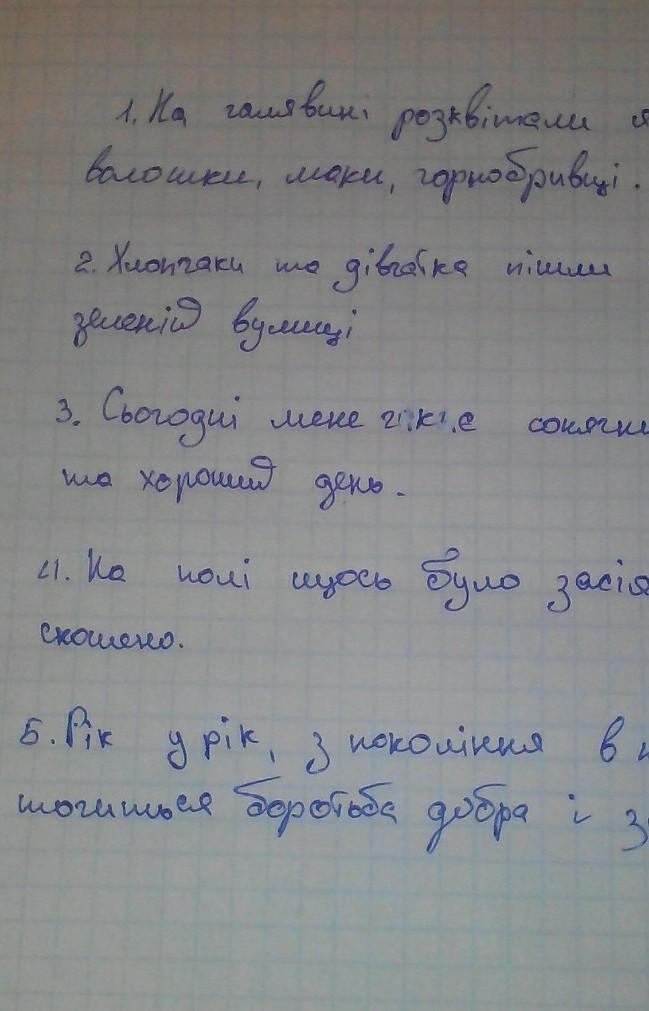 1. На галявині розквітали я
волошки, маки, горнобривці.
2. Хлопчаки та дівчатка пішли
зеленій вулиці
3. Сьогодні мене сонячн
та хороший день.
4. На полі щось було засія
скошено.
5. Рік у рік, з покоління в п
точиться боротьба добра і з